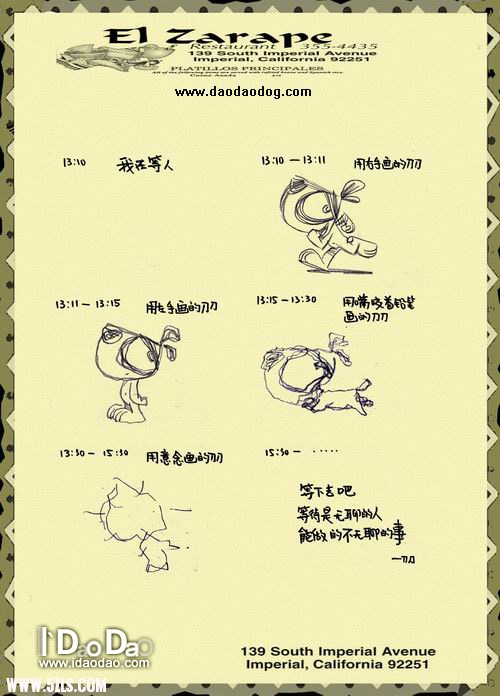 El Zarape
Restaurant 355-4435
139 South Imperial Avenue
Imperial, California 92251
PLATILLOS PRINCIPALES
All of the following items are served with refried beans and Spanish rice.
www.daodaodog.com
13:10 我在等人
13:10 — 13:11 用右手画的刀刀
13:11 — 13:15 用左手画的刀刀
13:15 — 13:30 用嘴咬着铅笔
画的刀刀
13:30 — 15:30 用意念画的刀刀
15:30 — ·····
等下去吧
等待是无聊的人
能做的不无聊的事
—刀刀
iDaoDao
www.idaodao.com
139 South Imperial Avenue
Imperial, California 92251